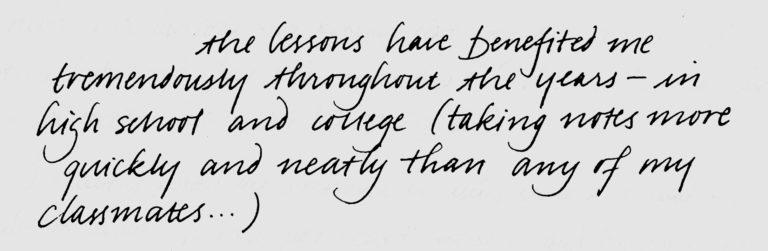 the lessons have benefited me
tremendously throughout the years – in
high school and college (taking notes more
quickly and neatly than any of my
classmates...)